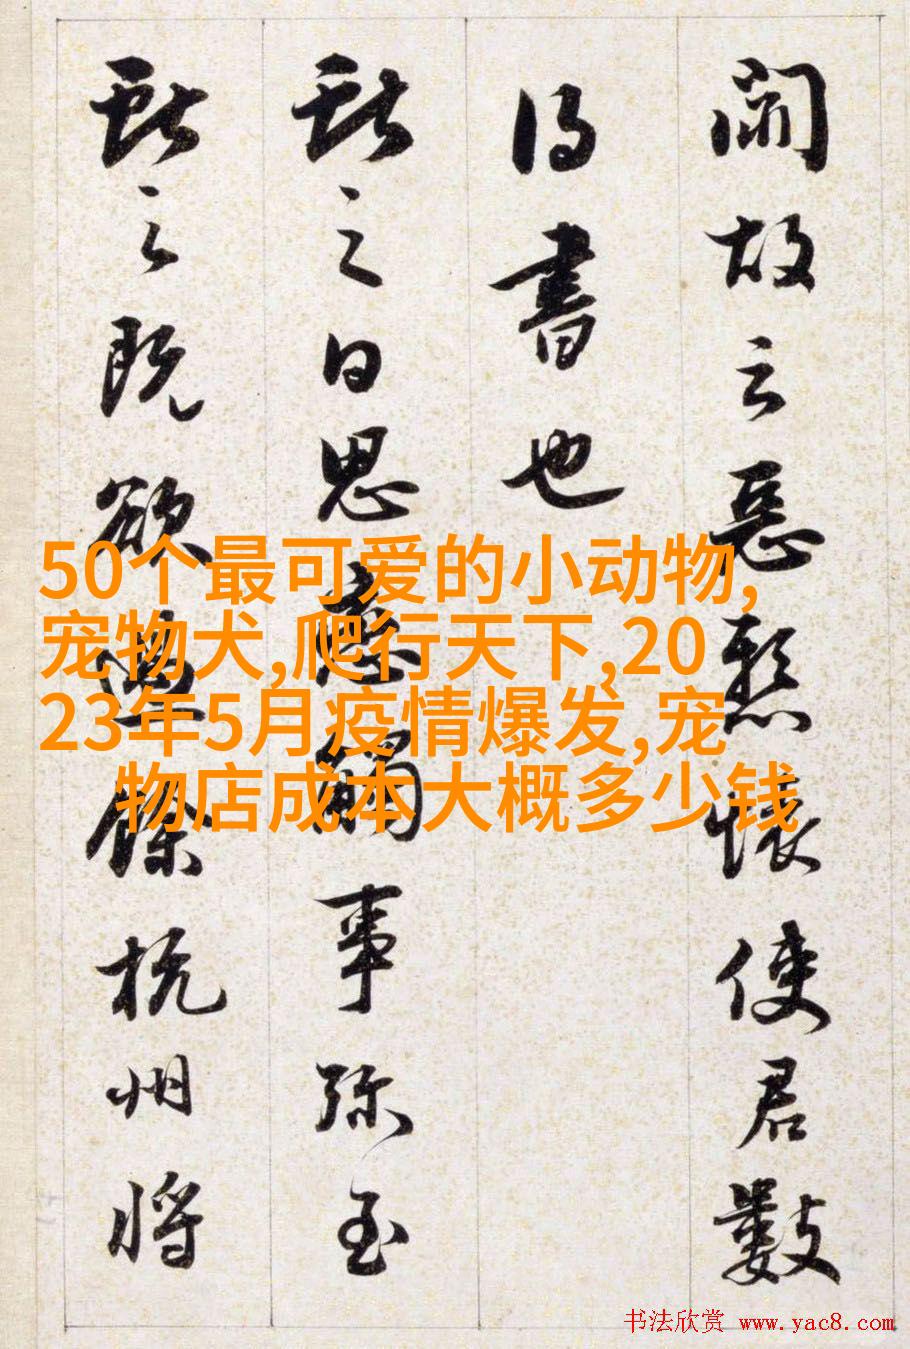 闻故云恶恳怀使君数
得书也
献之日思恋触事弥至
献之既欲过余杭州将
50个最可爱的小动物,
宠物犬,爬行天下,20
23年5月疫情爆发,宠
物店成本大概多少钱
书法欣赏 www.yac8.com